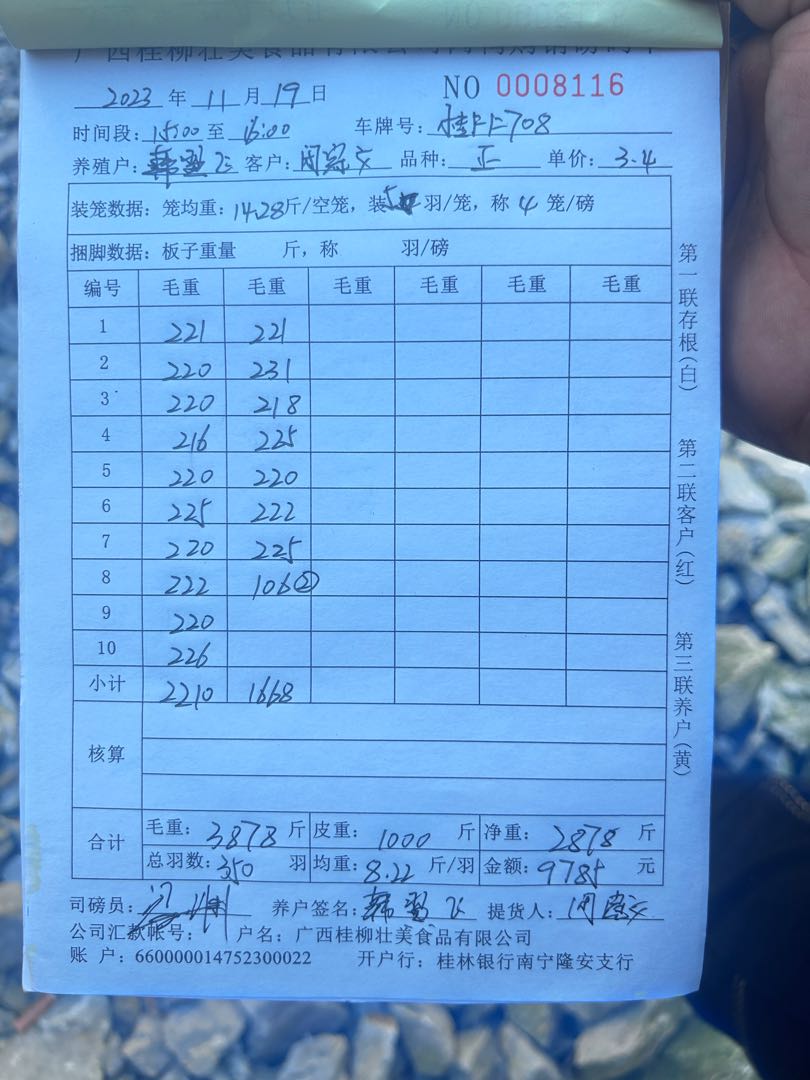 广西桂柳壮美食品有限公司
NO 0008116
2023 年 11 月 19 日
时间段: 15:00 至 16:00 车牌号:
养殖户: 客户: 品种: 正 单价: 3.4
装笼数据: 笼均重: 14.28 斤/空笼, 装 5 羽/笼, 称 4 笼/磅
捆脚数据: 板子重量 斤, 称 羽/磅
编号 毛重 毛重 毛重 毛重 毛重 毛重
1 221 221
2 220 231
3 220 218
4 216 225
5 220 220
6 225 222
7 220 225
8 222 106②
9 220
10 226
小计 2210 1668
核算
合计 毛重: 3878 斤 皮重: 1000 斤 净重: 2878 斤
总羽数: 350 羽 均重: 8.22 斤/羽 金额: 9785 元
司磅员: 养户签名: 提货人:
公司汇款帐号: 户名: 广西桂柳壮美食品有限公司
账 户: 660000014752300022 开户行: 桂林银行南宁隆安支行
第一联存根(白)
第二联客户(红)
第三联养户(黄)